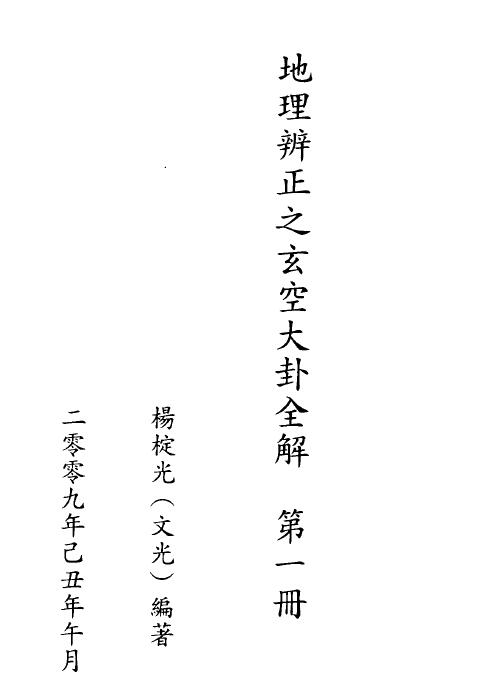 地理辨正之玄空大卦全解 第一冊
楊椗光（文光）編著
二零零九年己丑年午月